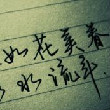 如花美眷
水流年